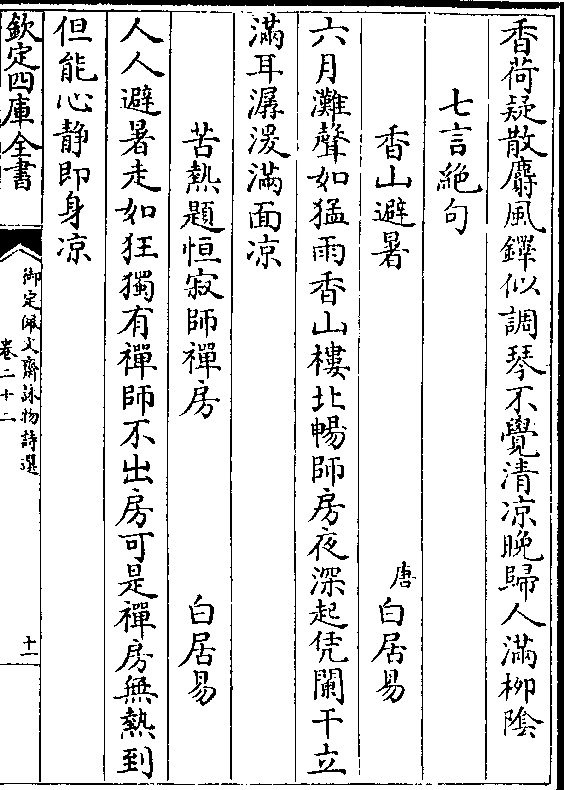 香荷疑散麝風鐸似調琴不覺清凉晚歸人滿柳陰
七言絶句
香山避暑
唐白居易
六月灘聲如猛雨香山樓北暢師房夜深起凭闌干立
滿耳潺湲滿面凉
苦熱題恒寂師禪房
白居易
人人避暑走如狂獨有禪師不出房可是禪房無熱到
但能心静即身凉
欽定四庫全書
御定佩文齋詠物詩選
卷二十二
十一